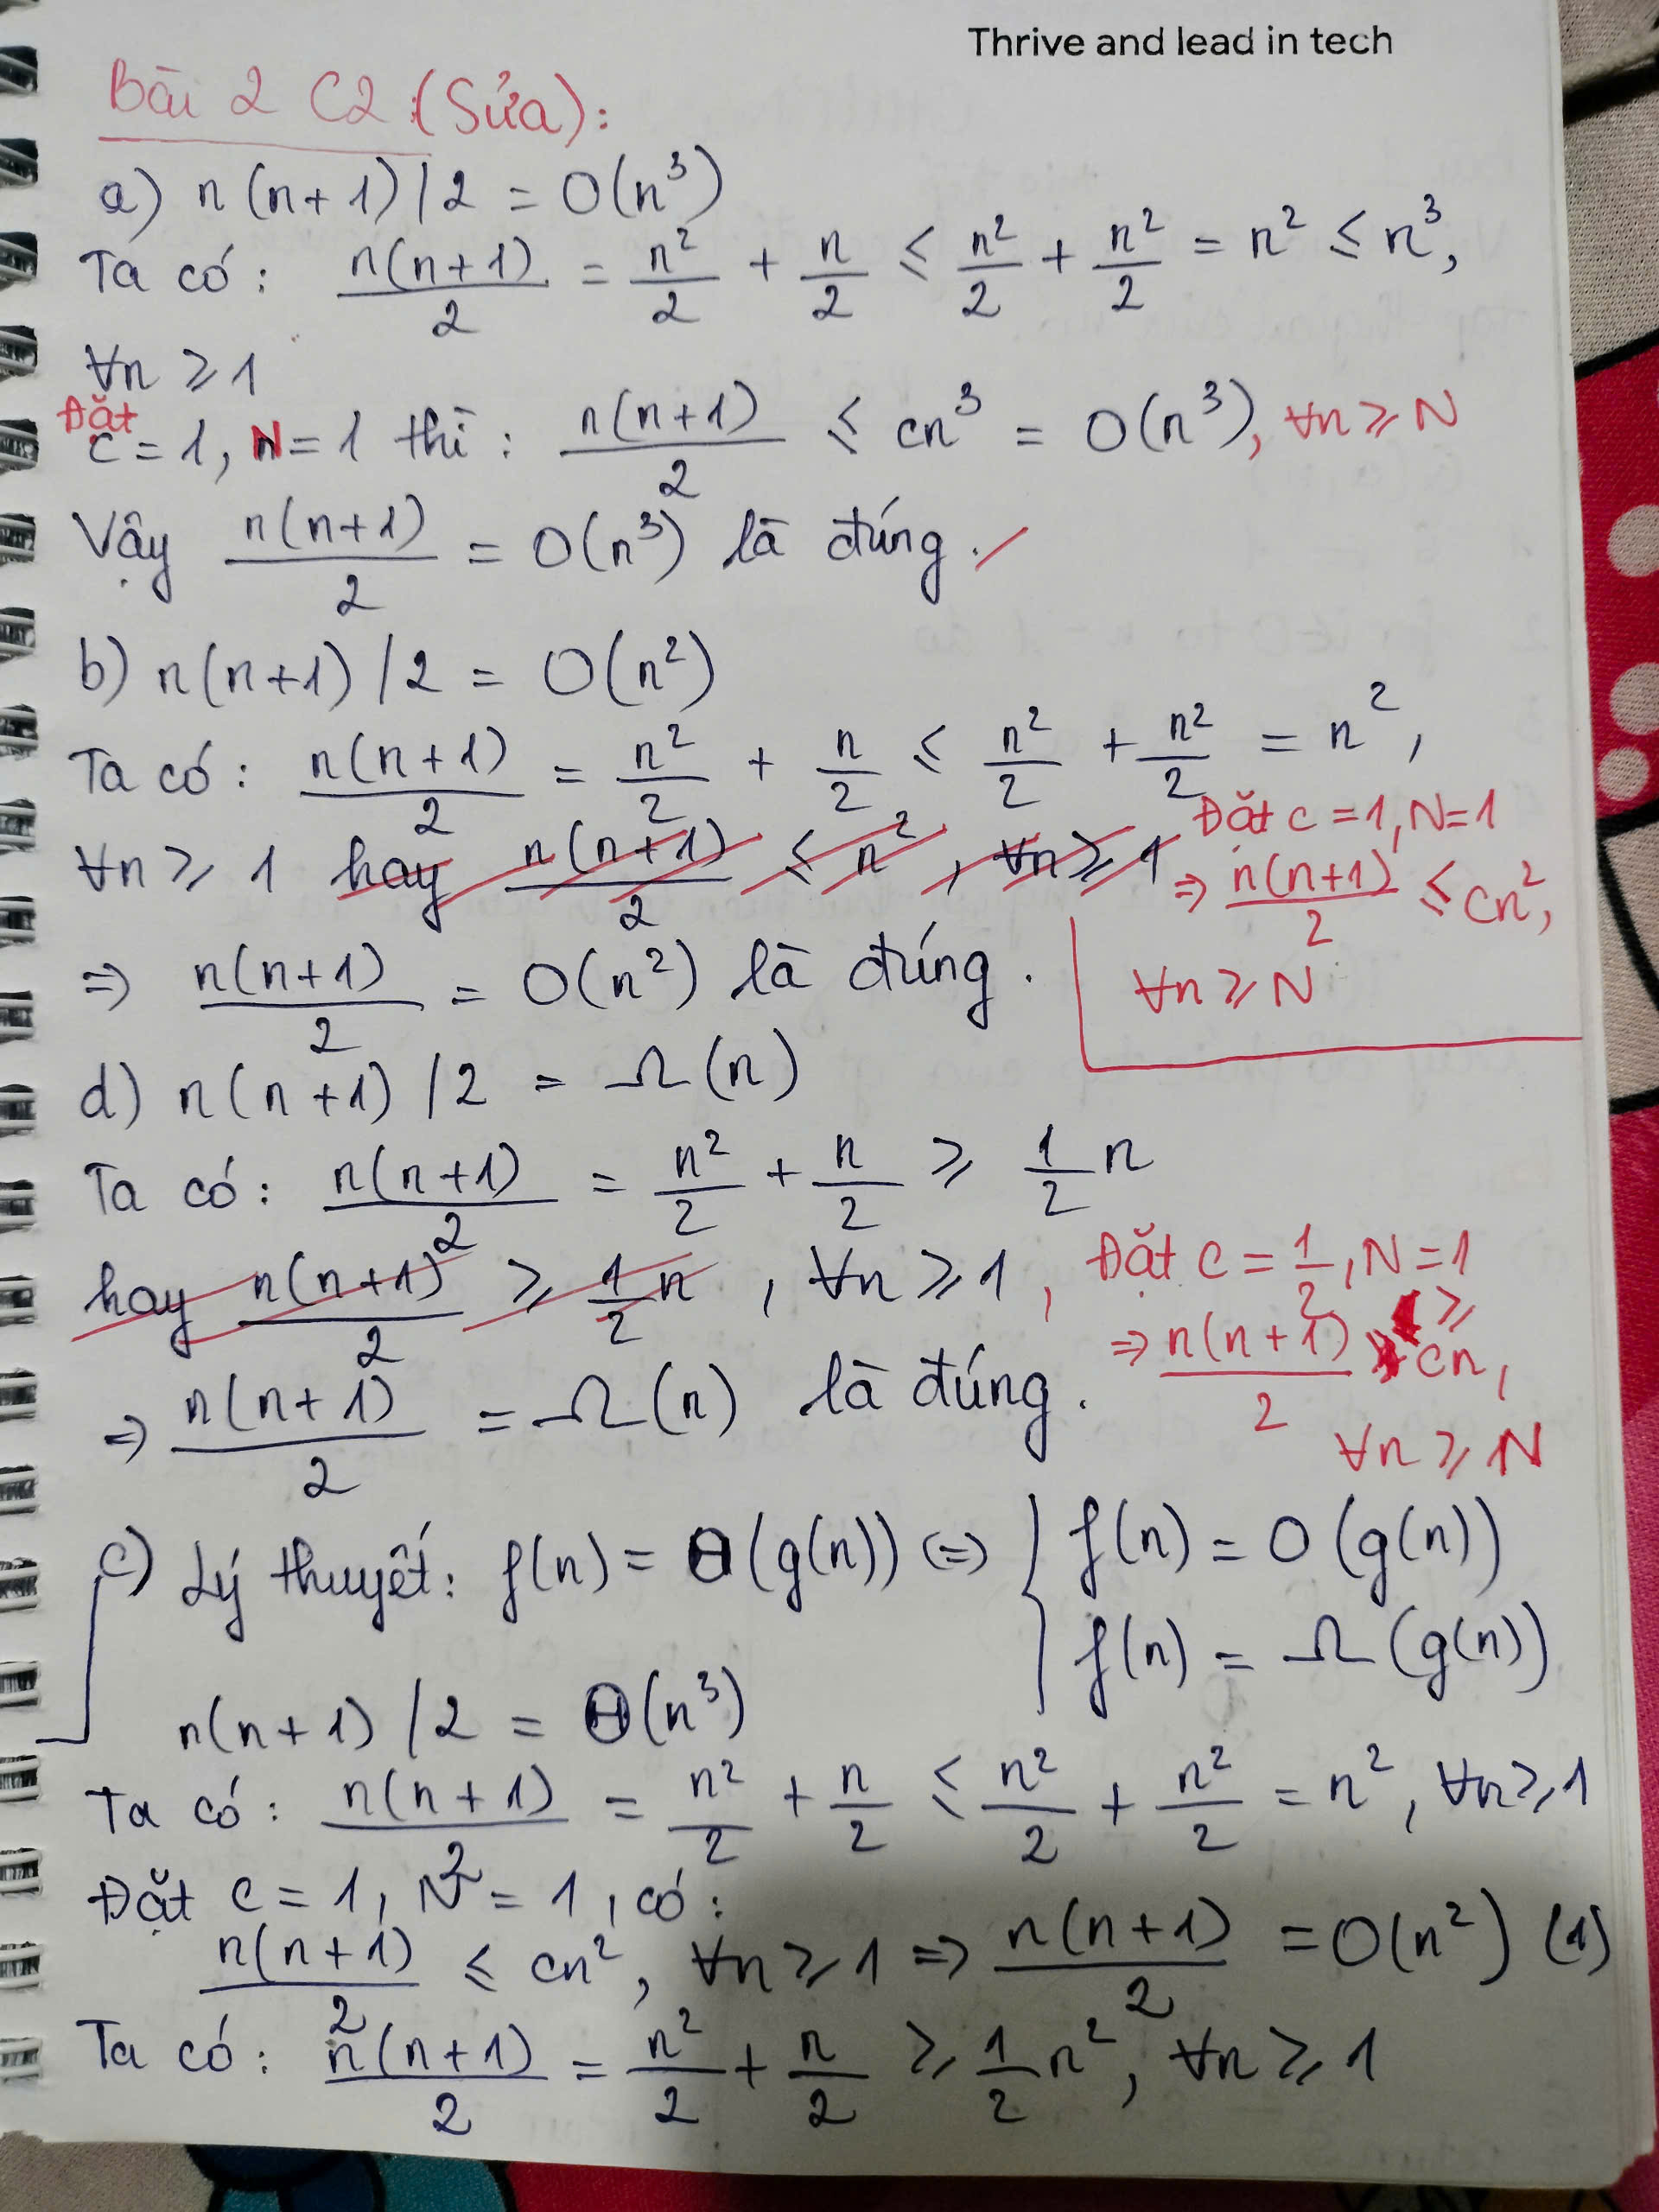 Thrive and lead in tech
Bài 2 C2 (Sửa):
a) n(n+1)/2 = O(n³)
Ta có: n(n+1)/2 = n²/2 + n/2 ≤ n²/2 + n²/2 = n² ≤ n³,
∀n ≥ 1
Đặt
c = 1, N = 1 thì: n(n+1)/2 ≤ cn³ = O(n³), ∀n ≥ N
Vậy n(n+1)/2 = O(n³) là đúng.
b) n(n+1)/2 = O(n²)
Ta có: n(n+1)/2 = n²/2 + n/2 ≤ n²/2 + n²/2 = n²,
∀n ≥ 1 hay n(n+1)/2 ≤ n², ∀n ≥ 1
Đặt c = 1, N = 1
⇒ n(n+1)/2 ≤ cn²,
∀n ≥ N
⇒ n(n+1)/2 = O(n²) là đúng.
d) n(n+1)/2 = Ω(n)
Ta có: n(n+1)/2 = n²/2 + n/2 ≥ 1/2 n
hay n(n+1)/2 ≥ 1/2 n, ∀n ≥ 1, Đặt c = 1/2, N = 1
⇒ n(n+1)/2 ≥ cn,
∀n ≥ N
⇒ n(n+1)/2 = Ω(n) là đúng.
c) Lý thuyết: f(n) = Θ(g(n)) ⇔ { f(n) = O(g(n))
f(n) = Ω(g(n))
n(n+1)/2 = Θ(n³)
Ta có: n(n+1)/2 = n²/2 + n/2 ≤ n²/2 + n²/2 = n², ∀n ≥ 1
Đặt c = 1, N = 1, có:
n(n+1)/2 ≤ cn², ∀n ≥ 1 ⇒ n(n+1)/2 = O(n²) (1)
Ta có: n(n+1)/2 = n²/2 + n/2 ≥ 1/2 n², ∀n ≥ 1